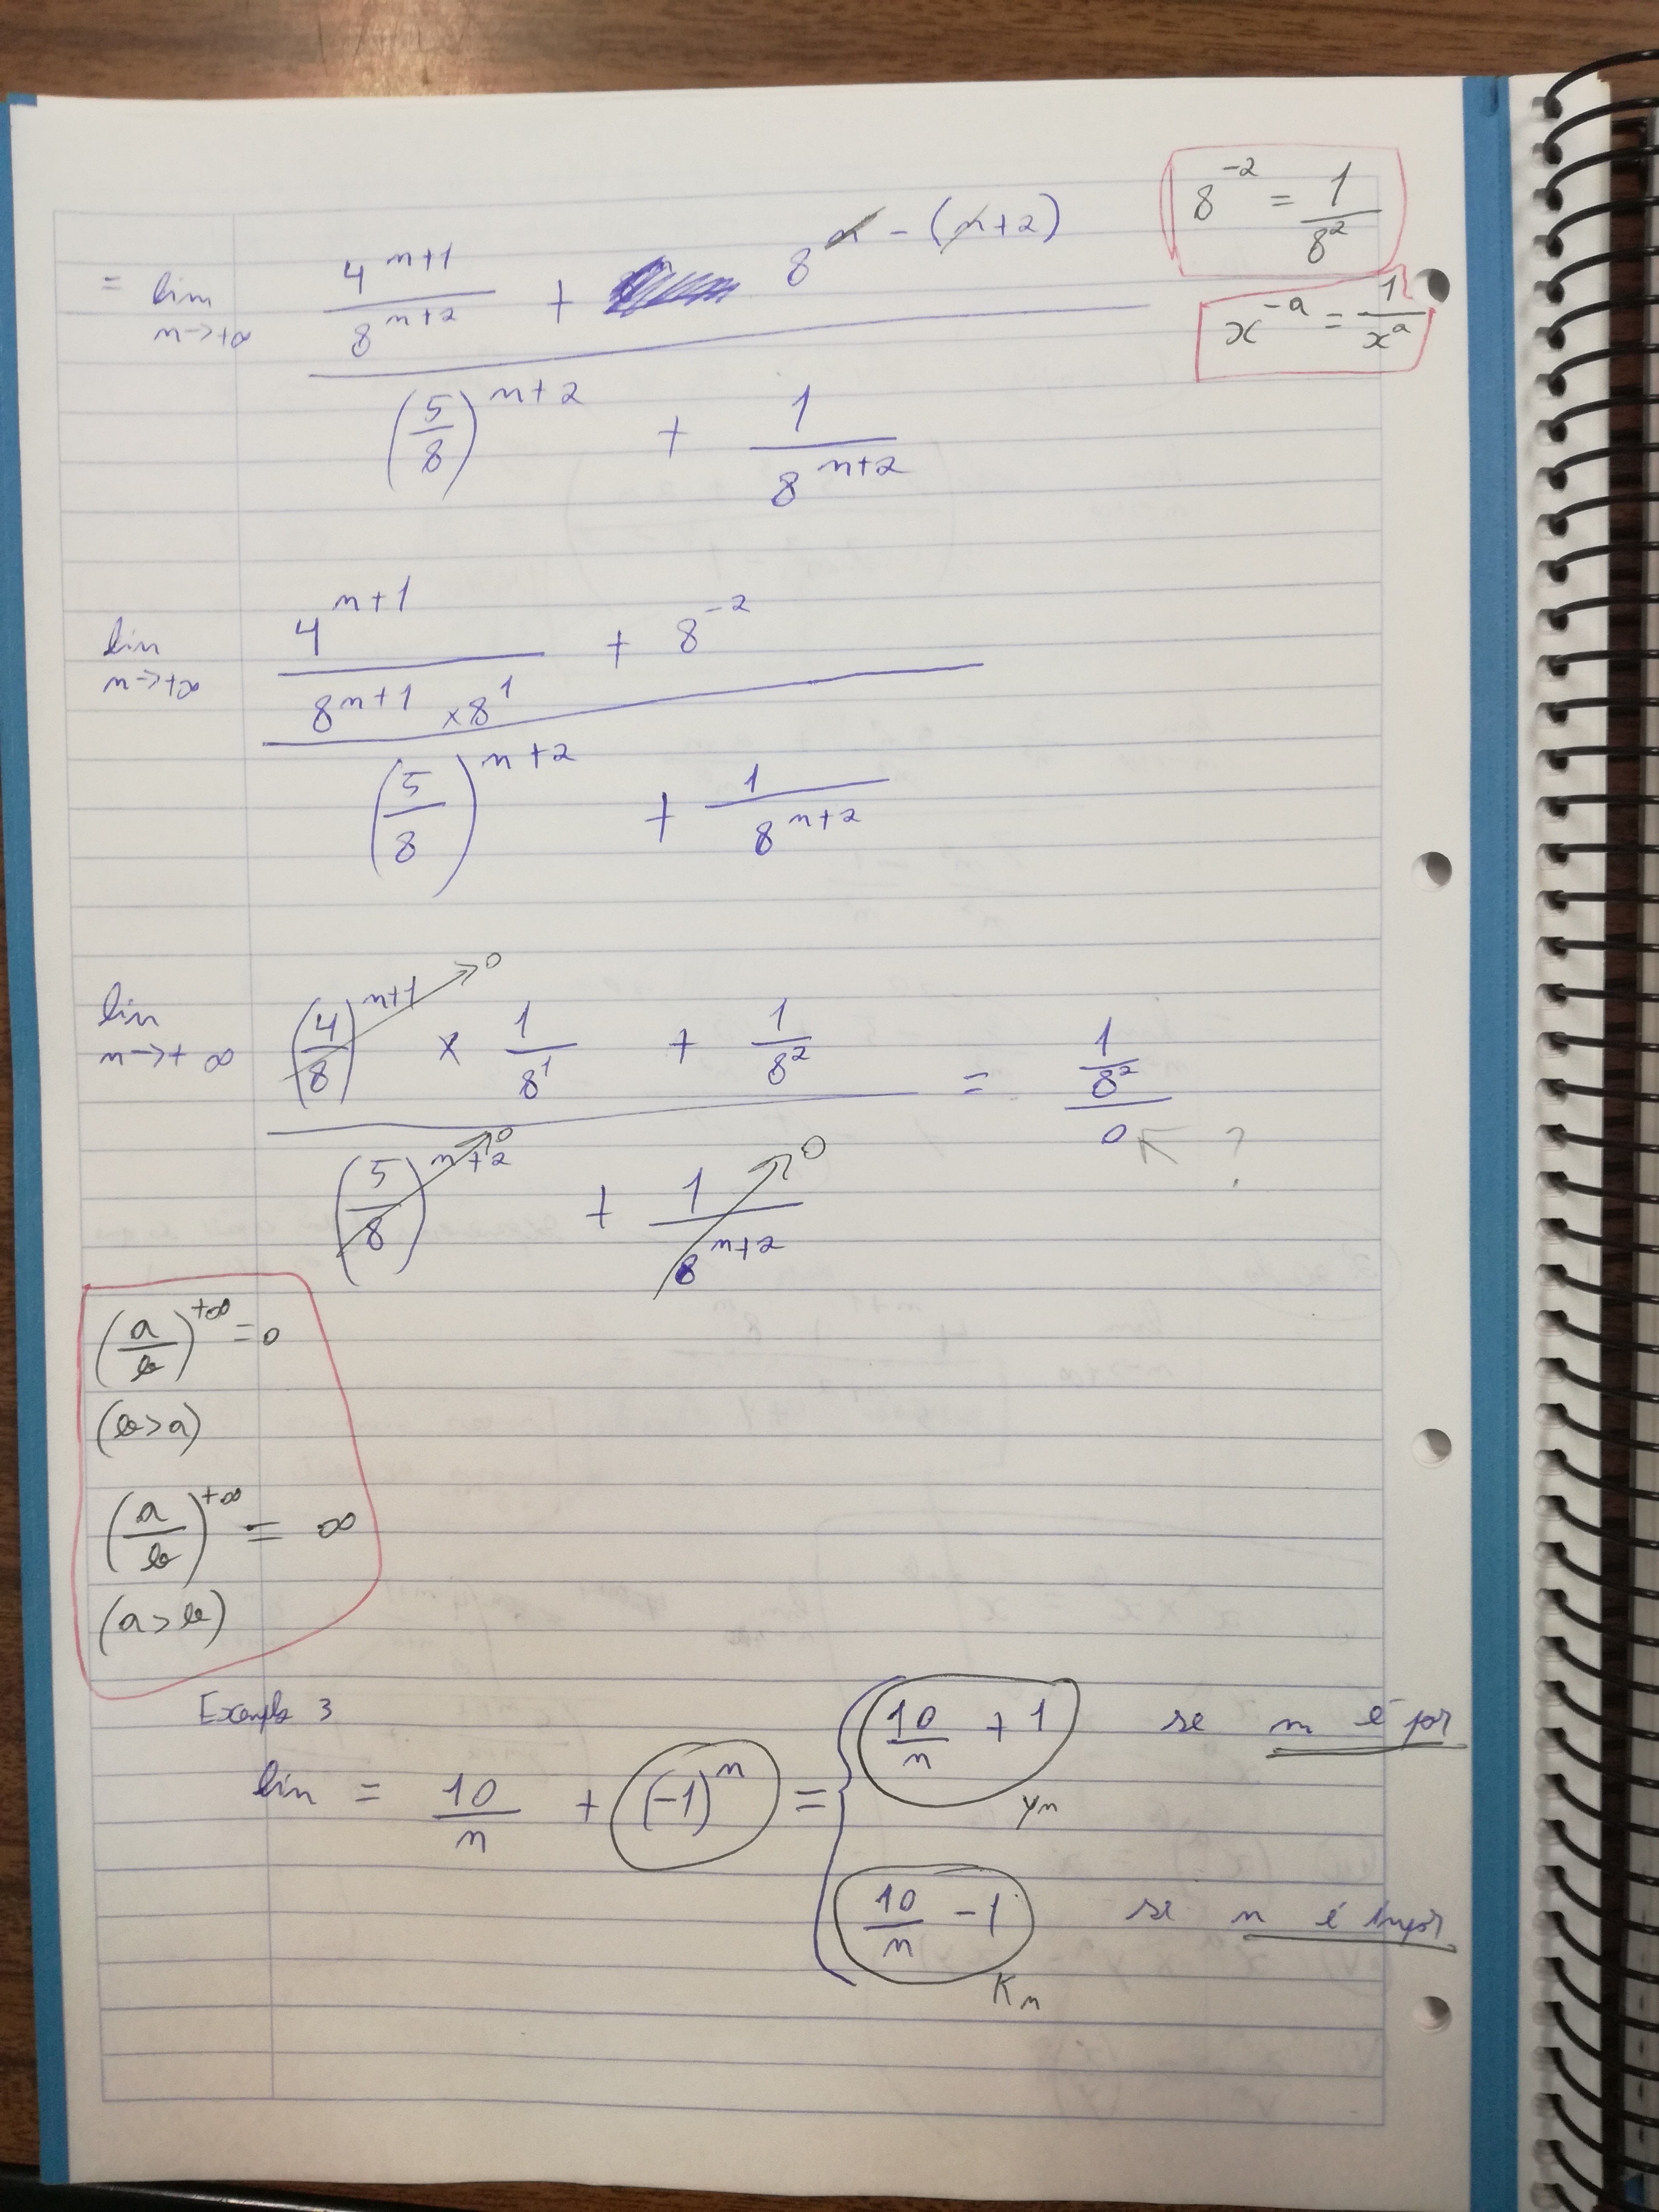 8^{-2} = \frac{1}{8^2}
x^{-a} = \frac{1}{x^a}
= lim_{n→+∞} \frac{\frac{4^{n+1}}{8^{n+2}} + 8^{n-(n+2)}}{\left(\frac{5}{8}\right)^{n+2} + \frac{1}{8^{n+2}}}
lim_{n→+∞} \frac{\frac{4^{n+1}}{8^{n+1} × 8^1} + 8^{-2}}{\left(\frac{5}{8}\right)^{n+2} + \frac{1}{8^{n+2}}}
lim_{n→+∞} \frac{\left(\frac{4}{8}\right)^{n+1 → 0} × \frac{1}{8^1} + \frac{1}{8^2}}{\left(\frac{5}{8}\right)^{n+2 → 0} + \frac{1}{8^{n+2}} → 0} = \frac{\frac{1}{8^2}}{0} ← ?
\left(\frac{a}{b}\right)^{+∞} = 0
(b>a)
\left(\frac{a}{b}\right)^{+∞} = ∞
(a>b)
Exemplo 3
lim = \frac{10}{n} + (-1)^n = {
\frac{10}{n} + 1 se n é par
yn
\frac{10}{n} - 1 se n é ímpar
Kn